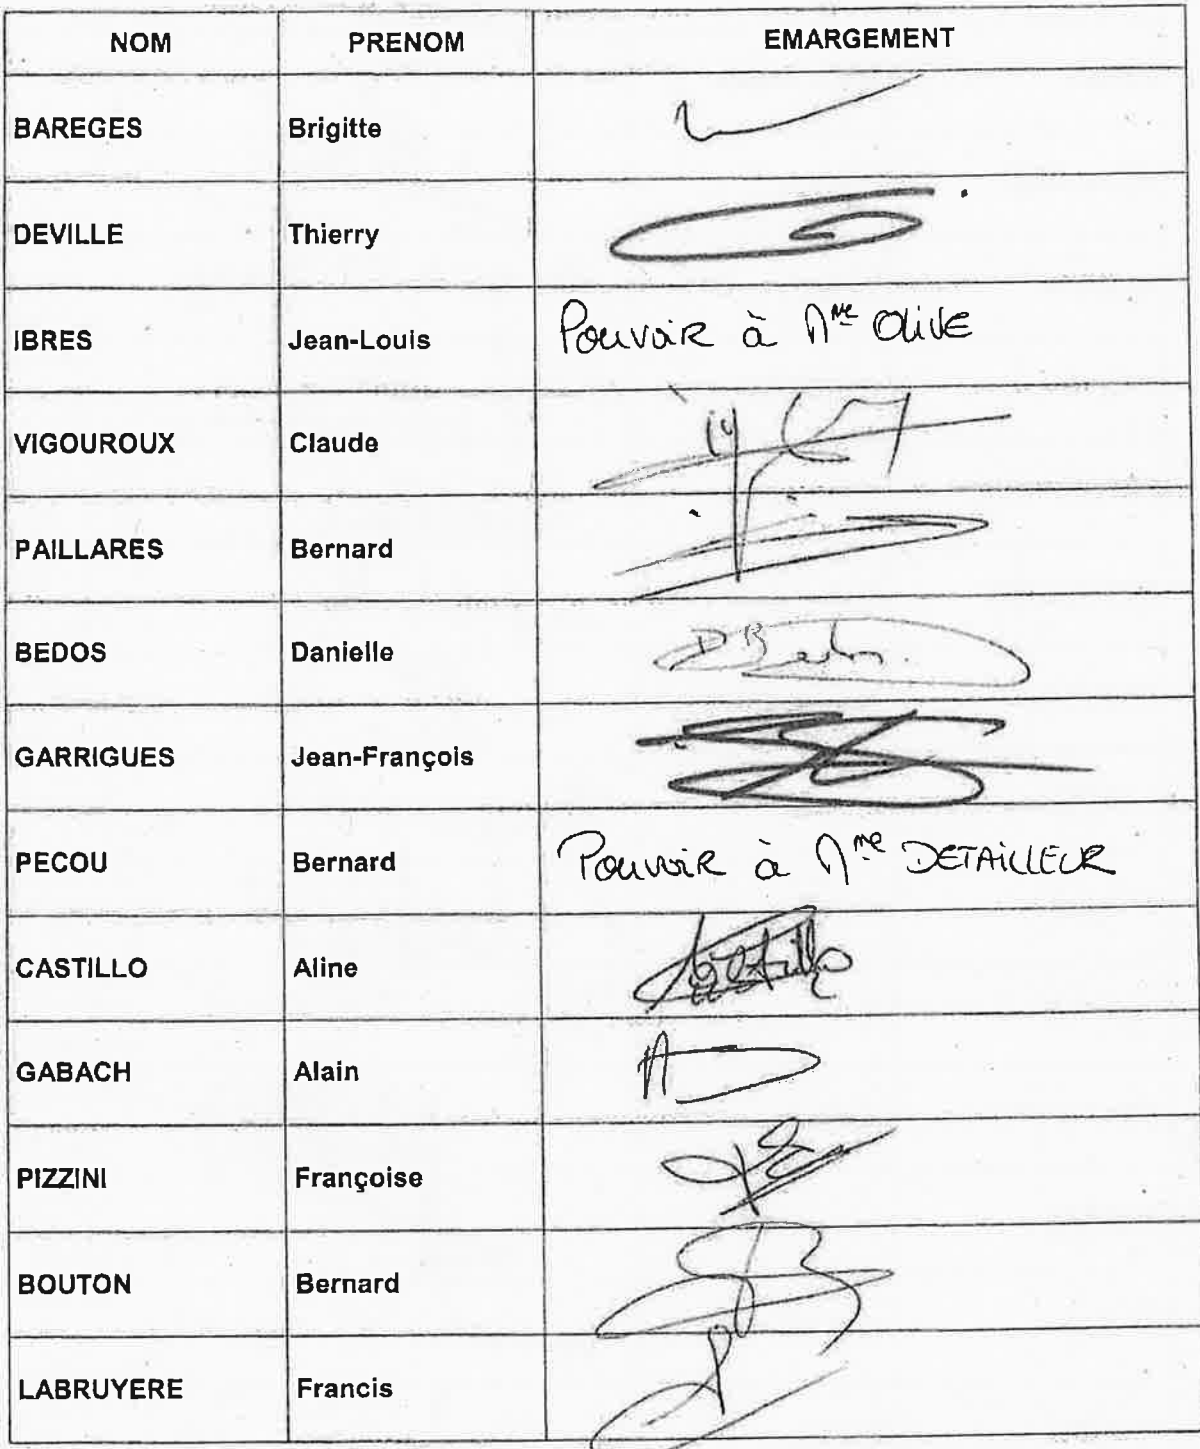 NOM PRENOM EMARGEMENT
BAREGES Brigitte
DEVILLE Thierry
IBRES Jean-Louis Pouvoir à Mme Olive
VIGOUROUX Claude
PAILLARES Bernard
BEDOS Danielle
GARRIGUES Jean-François
PECOU Bernard Pouvoir à Mme DETAILLEUR
CASTILLO Aline
GABACH Alain
PIZZINI Françoise
BOUTON Bernard
LABRUYERE Francis